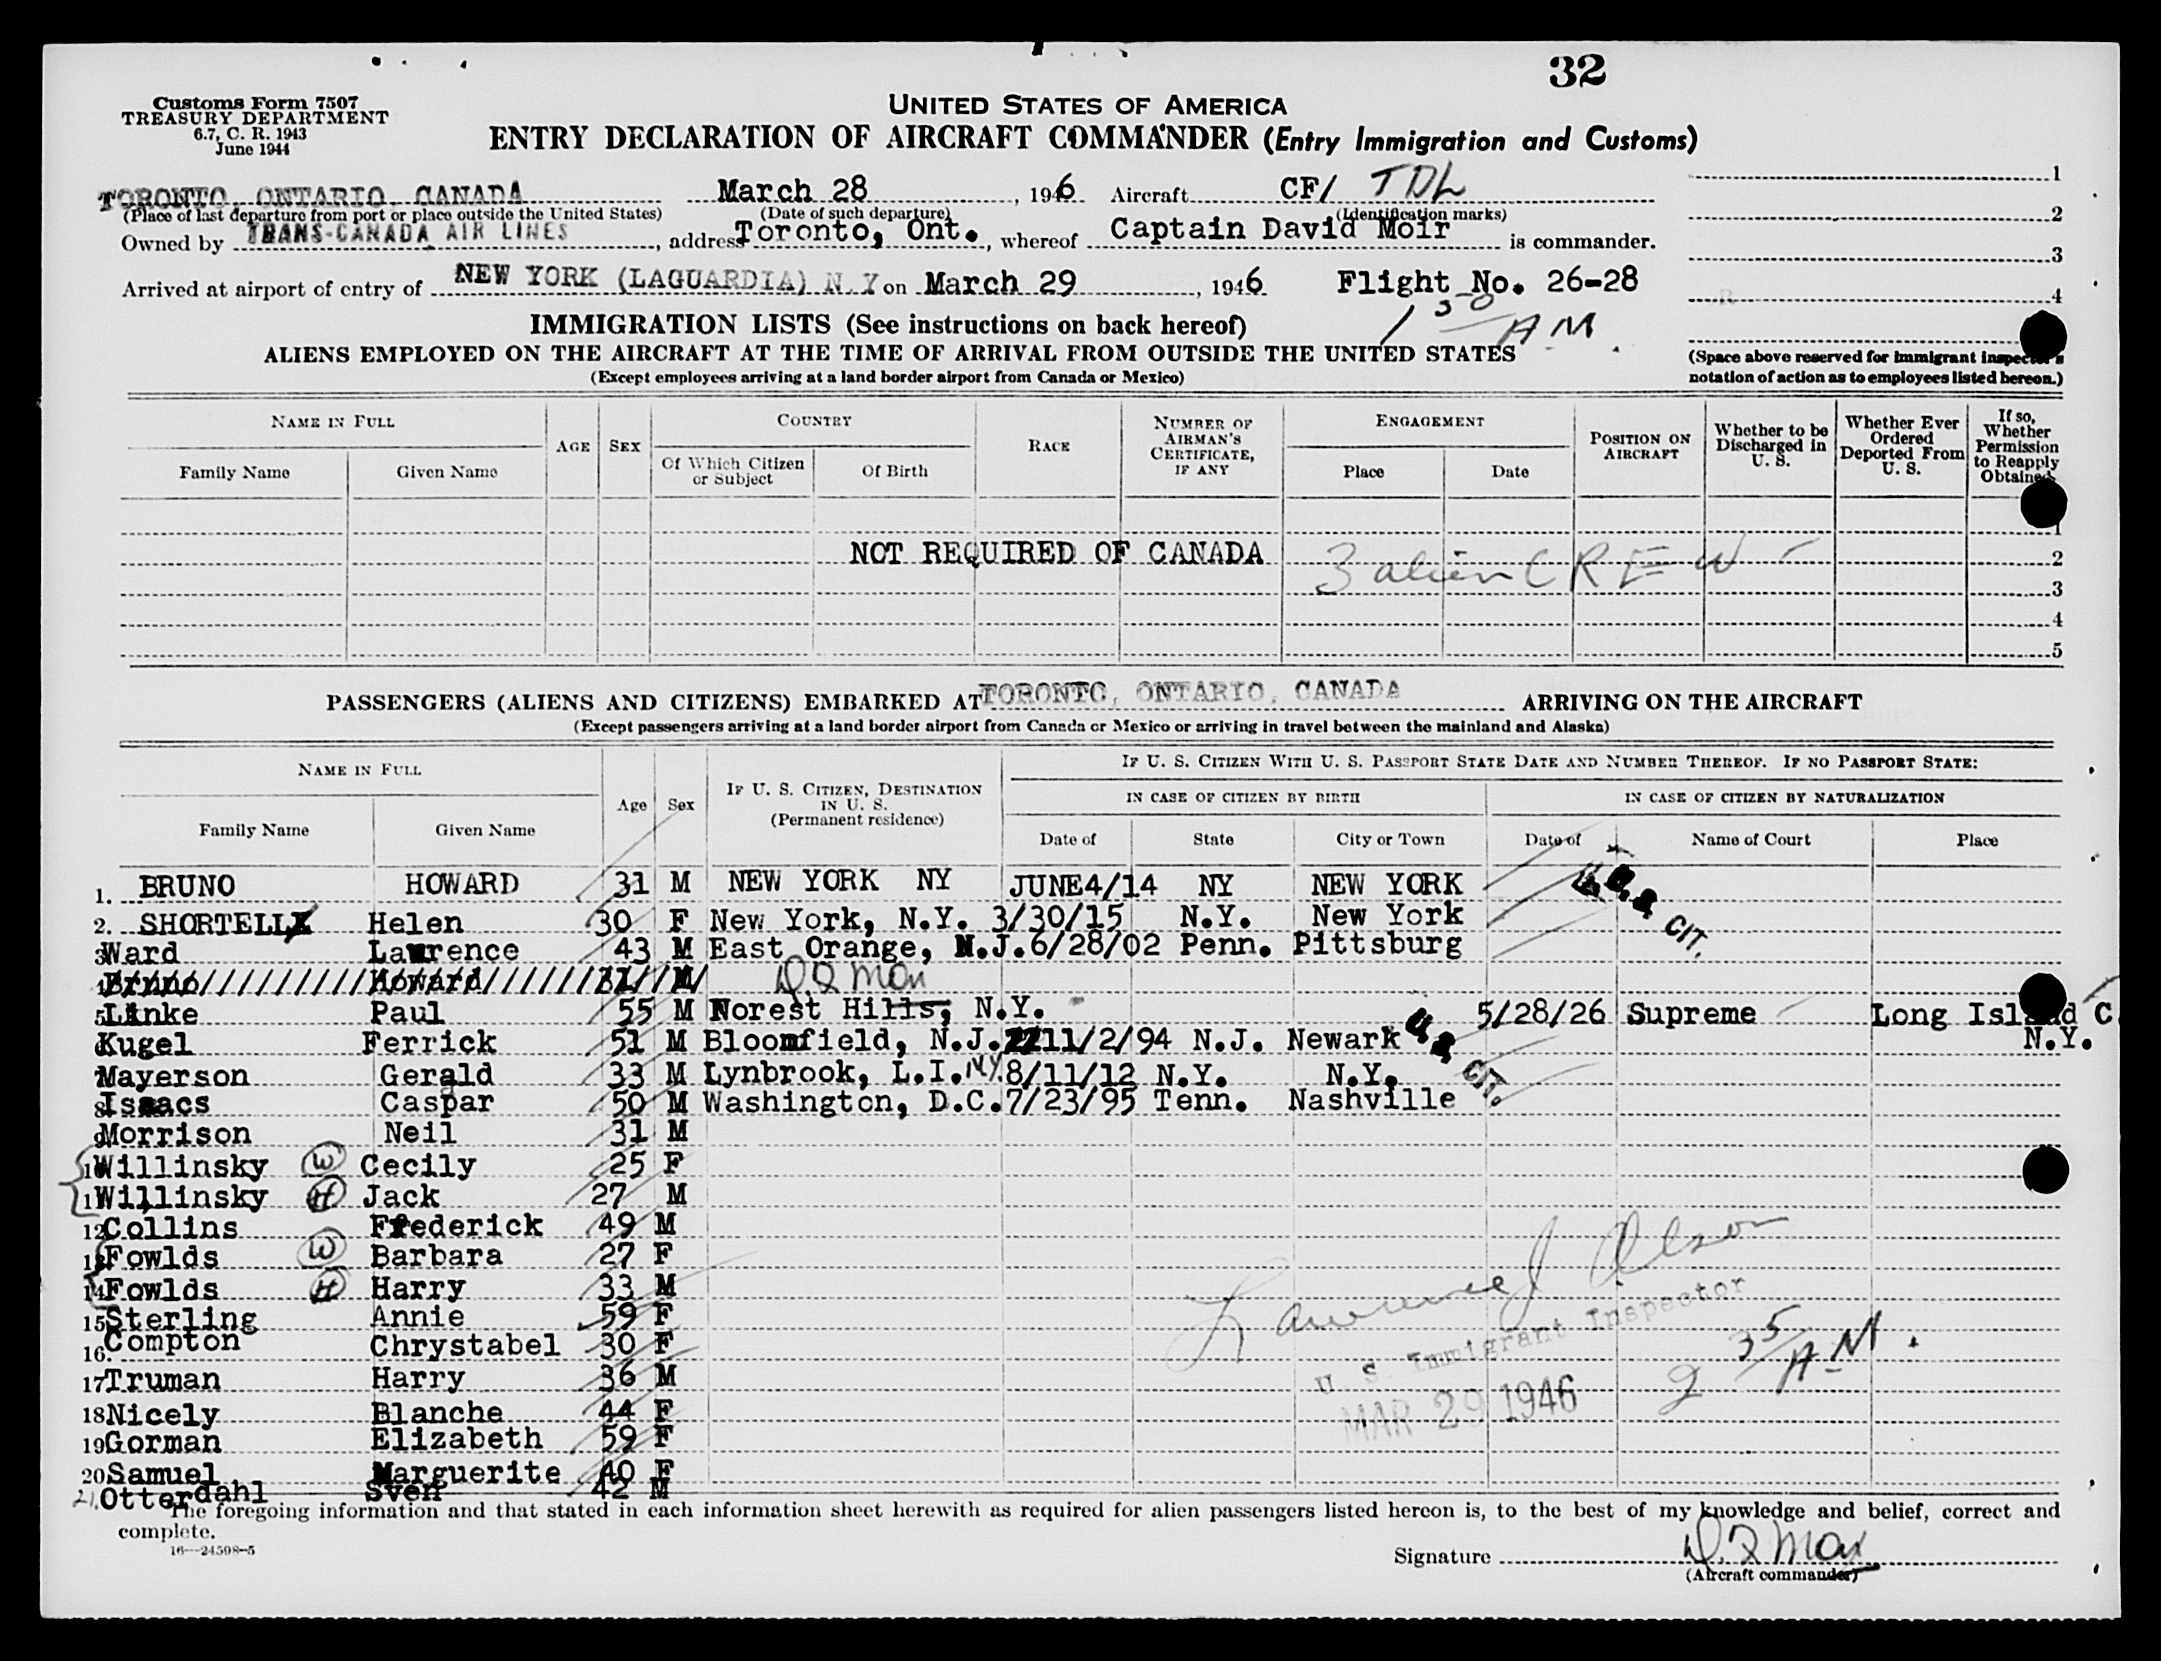 32
Customs Form 7507
TREASURY DEPARTMENT
6.7, C. R. 1943
June 1944
UNITED STATES OF AMERICA
ENTRY DECLARATION OF AIRCRAFT COMMANDER (Entry Immigration and Customs)
TORONTO, ONTARIO, CANADA March 28, 1946 Aircraft CF/ TDL
(Place of last departure from port or place outside the United States) (Date of such departure) (Identification marks)
Owned by TRANS-CANADA AIR LINES, address Toronto, Ont., whereof Captain David Moir is commander.
Arrived at airport of entry of NEW YORK (LAGUARDIA) N.Y on March 29, 1946 Flight No. 26-28
1 50/AM.
1
2
3
4
IMMIGRATION LISTS (See instructions on back hereof)
ALIENS EMPLOYED ON THE AIRCRAFT AT THE TIME OF ARRIVAL FROM OUTSIDE THE UNITED STATES
(Except employees arriving at a land border airport from Canada or Mexico)
(Space above reserved for immigrant inspector's
notation of action as to employees listed hereon.)
NAME IN FULL AGE SEX COUNTRY RACE NUMBER OF AIRMAN'S CERTIFICATE, IF ANY ENGAGEMENT POSITION ON AIRCRAFT Whether to be Discharged in U. S. Whether Ever Ordered Deported From U. S. If so, Whether Permission to Reapply Obtained
Family Name Given Name Of Which Citizen or Subject Of Birth Place Date
1
NOT REQUIRED OF CANADA 3 alien CREW 2
3
4
5
PASSENGERS (ALIENS AND CITIZENS) EMBARKED AT TORONTO, ONTARIO, CANADA ARRIVING ON THE AIRCRAFT
(Except passengers arriving at a land border airport from Canada or Mexico or arriving in travel between the mainland and Alaska)
NAME IN FULL Age Sex IF U. S. CITIZEN, DESTINATION IN U. S. (Permanent residence) IF U. S. CITIZEN WITH U. S. PASSPORT STATE DATE AND NUMBER THEREOF. IF NO PASSPORT STATE:
IN CASE OF CITIZEN BY BIRTH IN CASE OF CITIZEN BY NATURALIZATION
Family Name Given Name Date of State City or Town Date of Name of Court Place
1. BRUNO HOWARD 31 M NEW YORK NY JUNE4/14 NY NEW YORK
U.S. CIT.
2. SHORTELL Helen 30 F New York, N.Y. 3/30/15 N.Y. New York
3 Ward Lawrence 43 M East Orange, N.J. 6/28/02 Penn. Pittsburg
4 Bruno////////////Howard//////31//M/
5 Linke Paul 55 M Forest Hills, N.Y. 5/28/26 Supreme Long Island C
N.Y.
6 Kugel Ferrick 51 M Bloomfield, N.J. 11/2/94 N.J. Newark
U.S. CIT.
7 Mayerson Gerald 33 M Lynbrook, L.I. NY. 8/11/12 N.Y. N.Y.
8 Isaacs Caspar 50 M Washington, D.C. 7/23/95 Tenn. Nashville
9 Morrison Neil 31 M
10 Willinsky W Cecily 25 F
11 Willinsky H Jack 27 M
12 Collins Frederick 49 M
13 Fowlds W Barbara 27 F
14 Fowlds H Harry 33 M
15 Sterling Annie 59 F
16. Compton Chrystabel 30 F
17 Truman Harry 36 M
18 Nicely Blanche 44 F
19 Gorman Elizabeth 59 F
20 Samuel Marguerite 40 F
21. Otterdahl Sven 42 M
Lawrence J Olson
U S Immigrant Inspector
MAR 29 1946
2 35/AM.
The foregoing information and that stated in each information sheet herewith as required for alien passengers listed hereon is, to the best of my knowledge and belief, correct and
complete.
16—24598-5
Signature
(Aircraft commander)